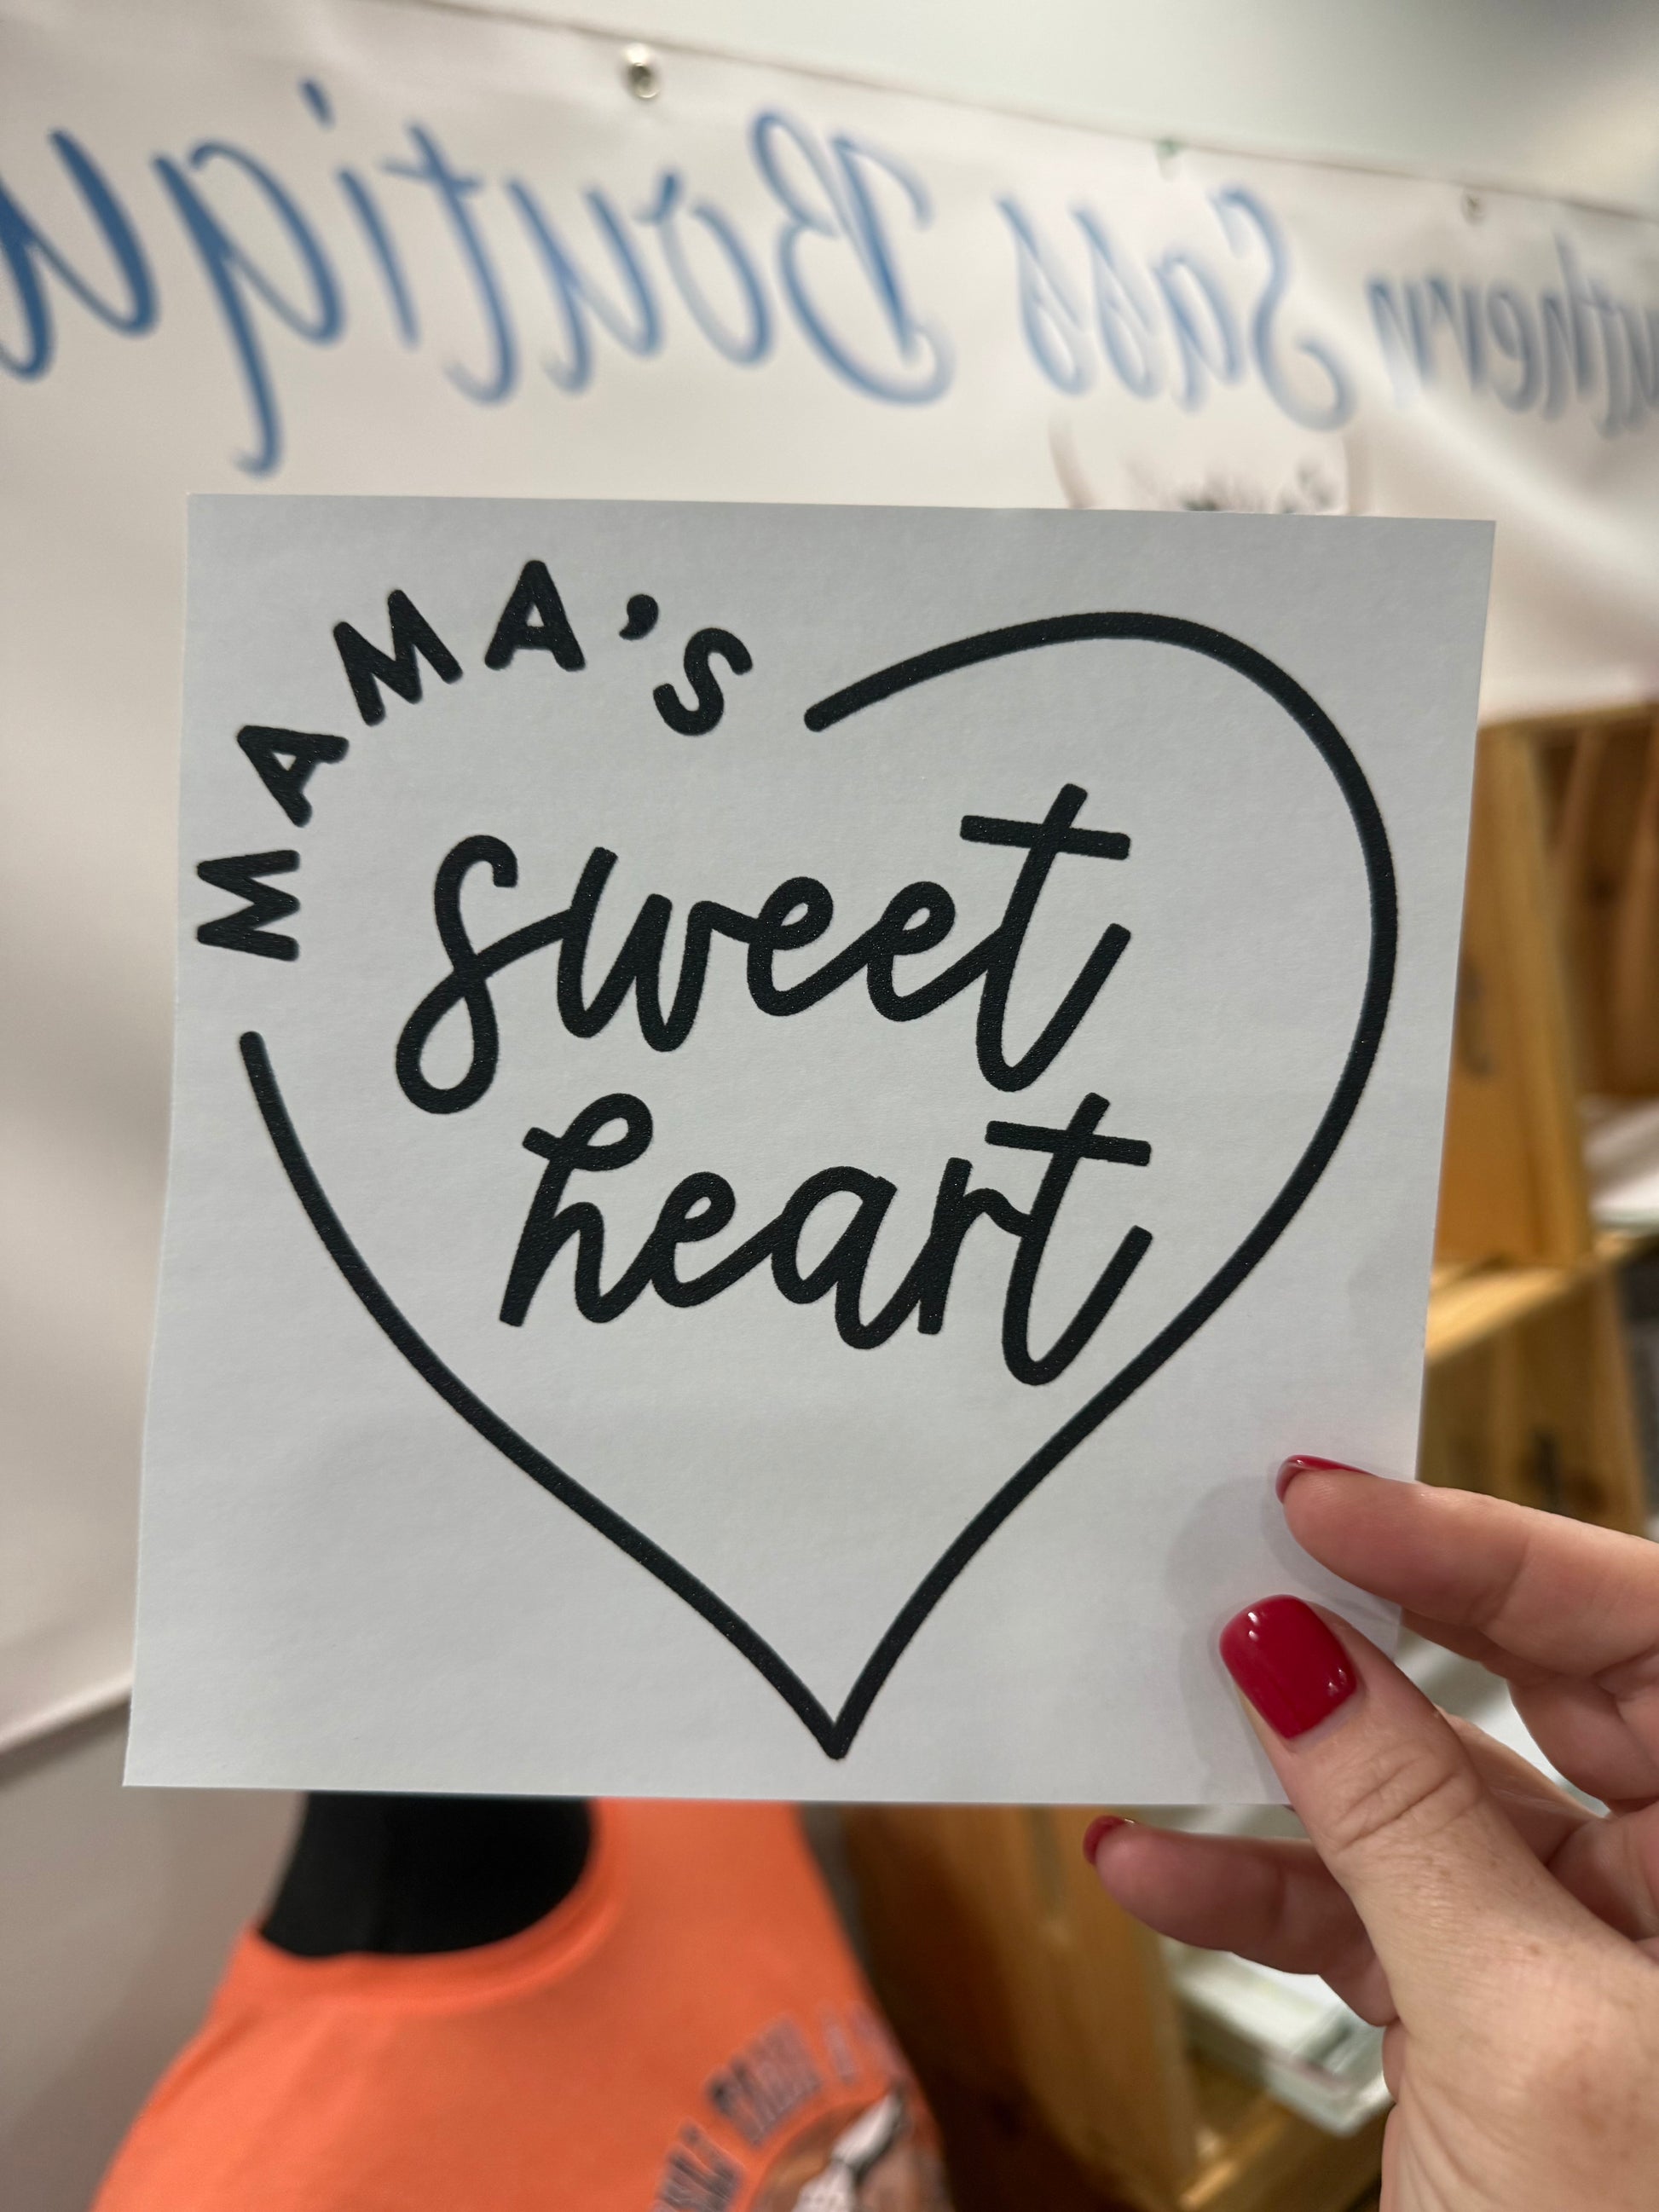 Southern Sass Boutiqu
MAMA'S
sweet
heart